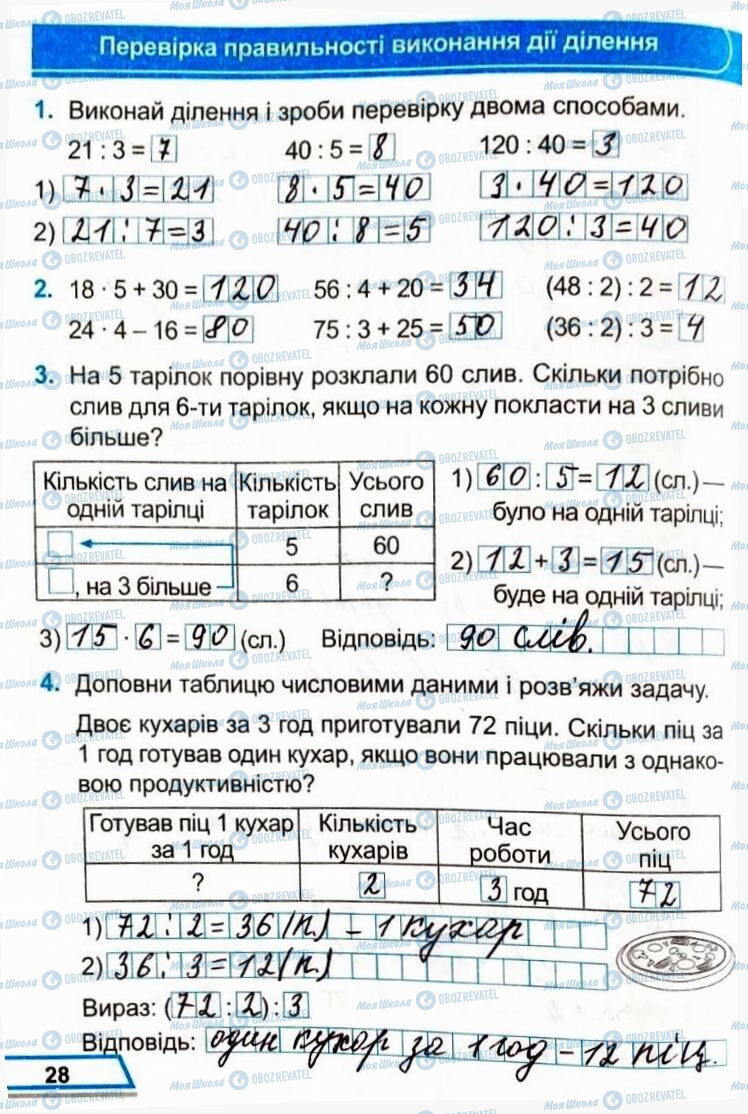 Перевірка правильності виконання дії ділення
1. Виконай ділення і зроби перевірку двома способами.
21 : 3 = 7 40 : 5 = 8 120 : 40 = 3
1) 7 · 3 = 21 8 · 5 = 40 3 · 40 = 120
2) 21 : 7 = 3 40 : 8 = 5 120 : 3 = 40
2. 18 · 5 + 30 = 120 56 : 4 + 20 = 34 (48 : 2) : 2 = 12
24 · 4 – 16 = 80 75 : 3 + 25 = 50 (36 : 2) : 3 = 4
3. На 5 тарілок порівну розклали 60 слив. Скільки потрібно
слив для 6-ти тарілок, якщо на кожну покласти на 3 сливи
більше?
Кількість слив на одній тарілці Кількість тарілок Усього слив
5 60
, на 3 більше 6 ?
1) 60 : 5 = 12 (сл.) —
було на одній тарілці;
2) 12 + 3 = 15 (сл.) —
буде на одній тарілці;
3) 15 · 6 = 90 (сл.) Відповідь: 90 слів.
4. Доповни таблицю числовими даними і розв'яжи задачу.
Двоє кухарів за 3 год приготували 72 піци. Скільки піц за
1 год готував один кухар, якщо вони працювали з однако-
вою продуктивністю?
Готував піц 1 кухар за 1 год Кількість кухарів Час роботи Усього піц
? 2 3 год 72
1) 72 : 2 = 36 (п) – 1 кухар
2) 36 : 3 = 12 (п)
Вираз: (72 : 2) : 3
Відповідь: один кухар за 1 год – 12 піц.
28
МояШкола OBOZREVATEL